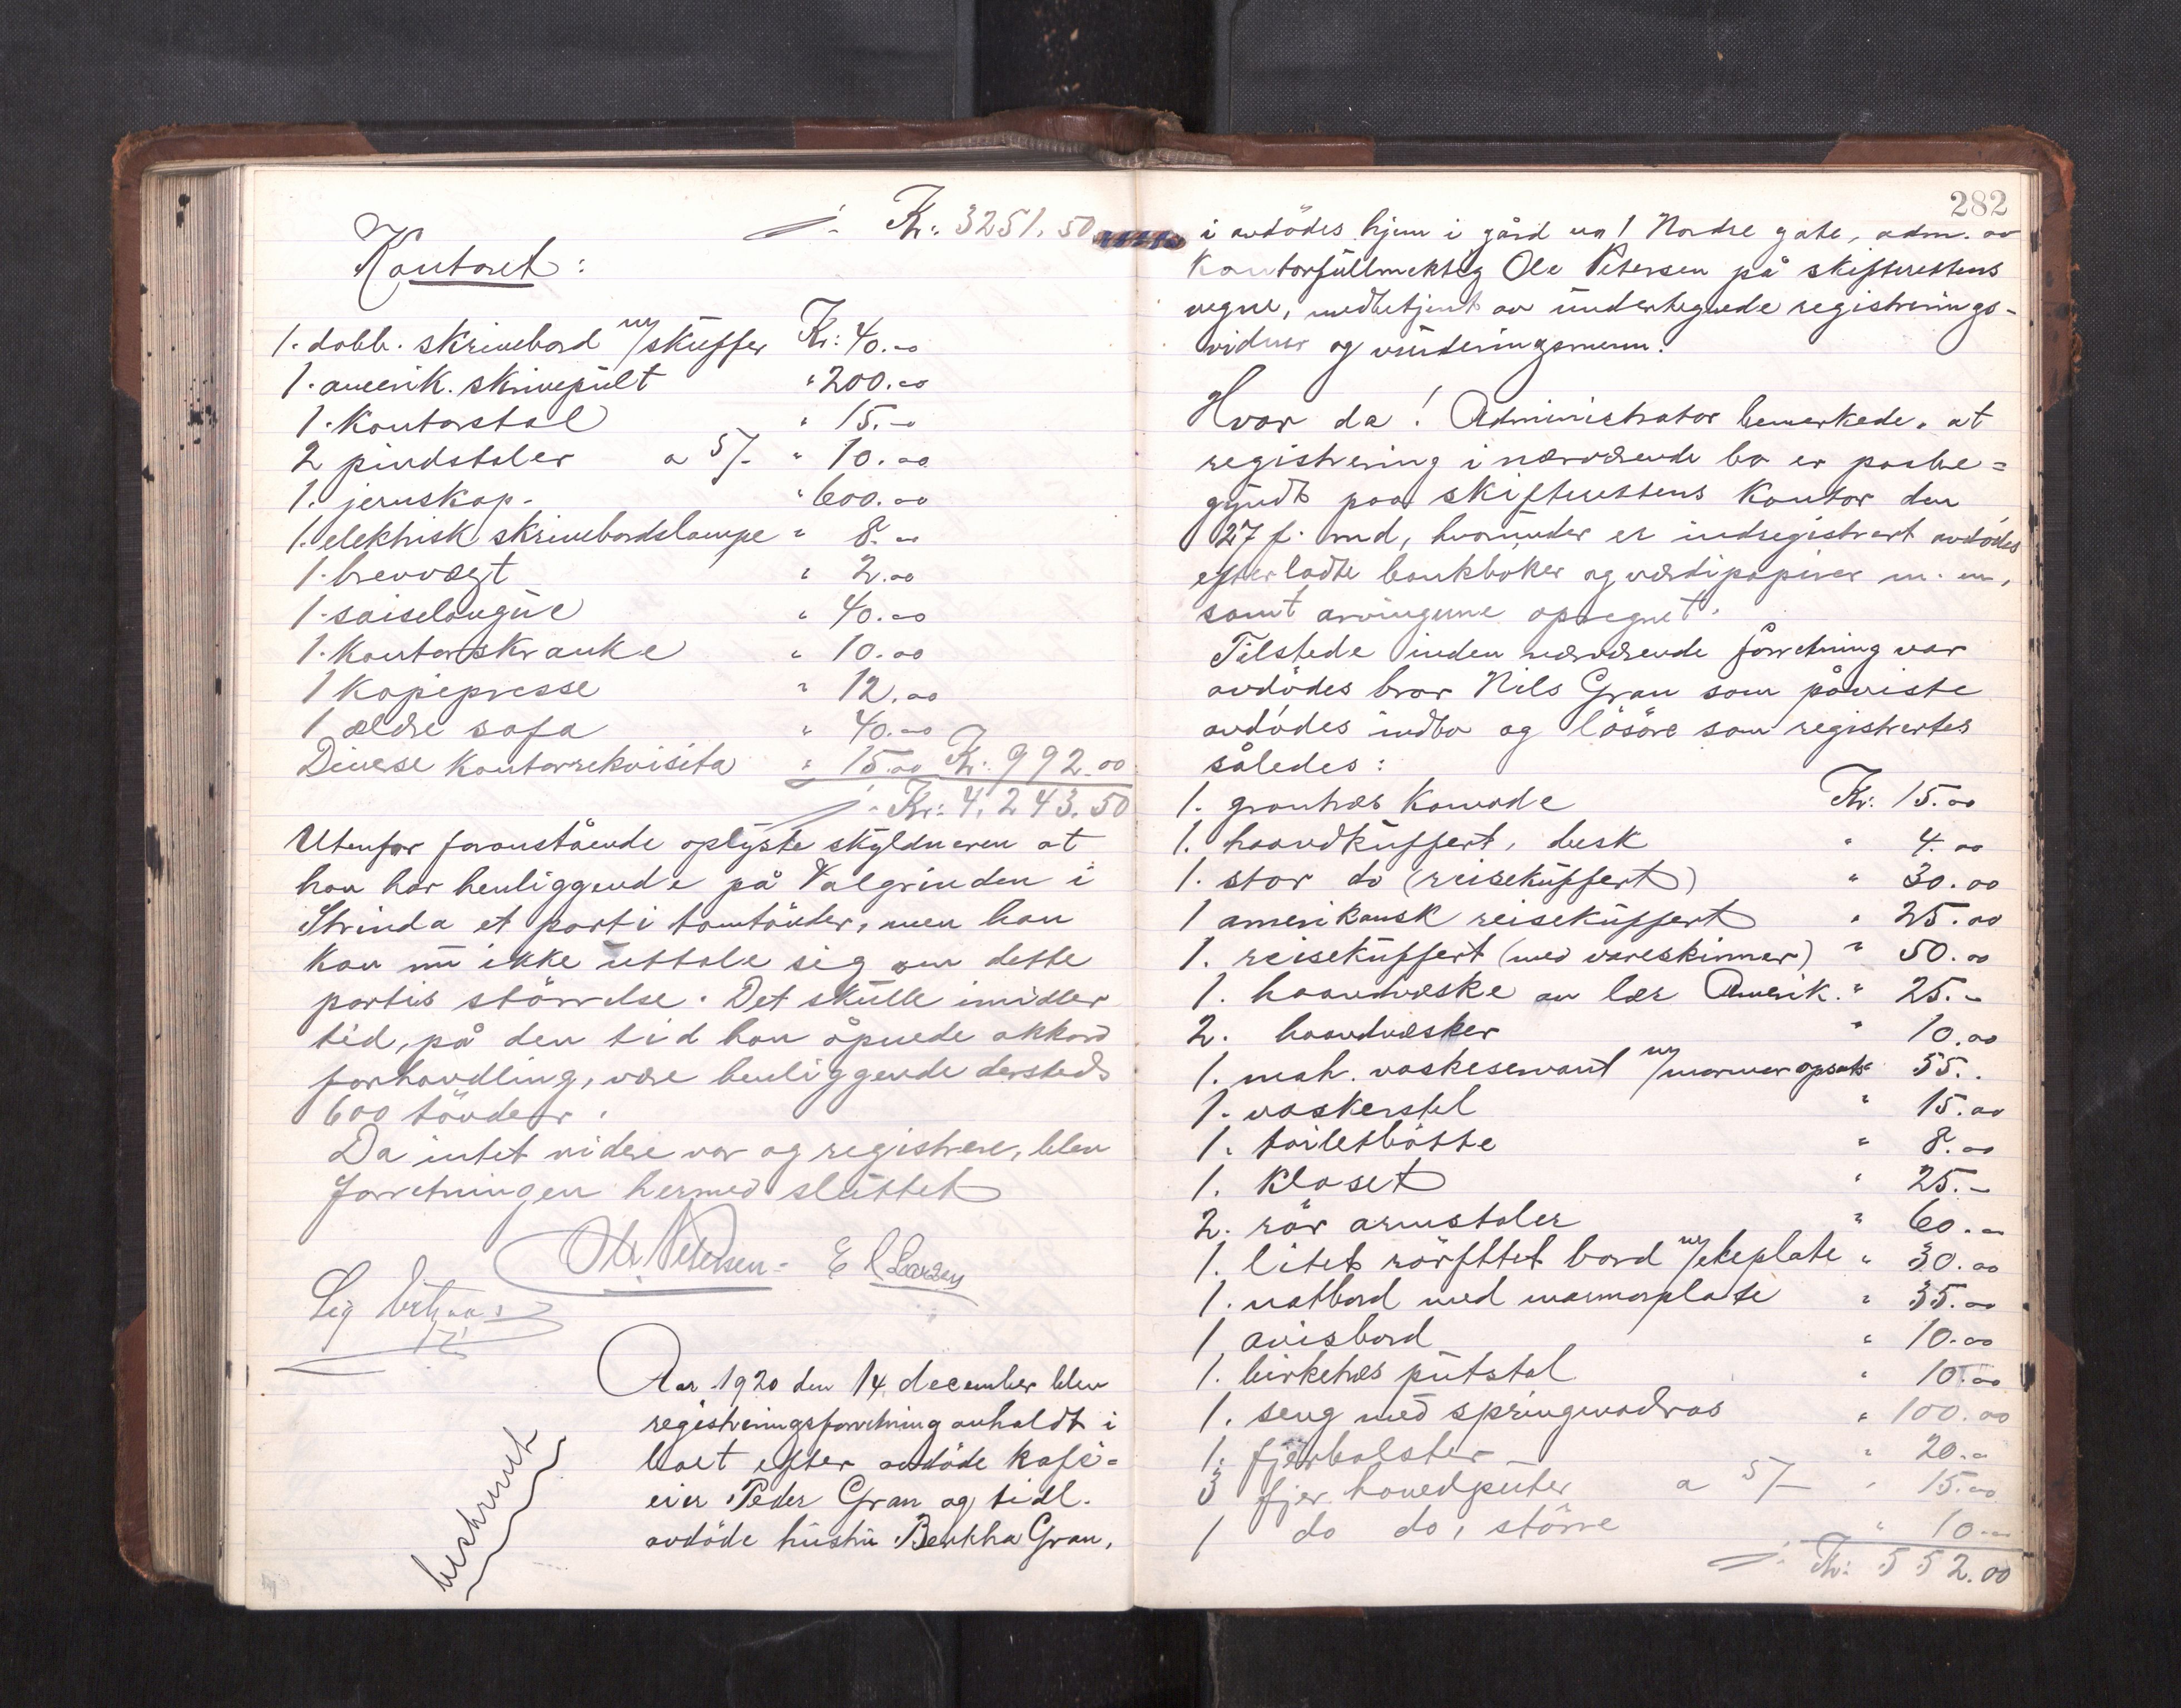 Kr. 3251.50
Kontoret:
1. dobb. skrivebord m/skuffer Kr: 40.00
1. amerik. skrivepult " 200.00
1. kontorstol " 15.-
2 pindstoler a 5/- " 10.00
1. jernskap. " 600.00
1. elektrisk skrivebordslampe " 8.00
1. brevvægt " 2.00
1. saiselongue " 40.00
1. kontorskranke " 10.00
1 kopiepresse " 12.00
1 ældre sofa " 40.00
Diverse kontorrekvisita " 15.00 Kr: 992.00
Kr: 4.243.50
Utenfor foranstående oplyste skyldneren at
han har henliggende på Valgrinden i
Strinda et parti tomtönder, men han
kan nu ikke uttale sig om dette
partis störrelse. Det skulle imidler
tid, på den tid han åpnede akkord
forhandling, være henliggende dersteds
600 tönder.
Da intet videre var og registrere, blev
forretningen hermed sluttet
Ole Petersen - E Larsen
Sig
Aar 1920 den 14. december blev
registreringsforretning anholdt i
boet efter avdöde kafé-
eier Peder Gran og tidl.
avdöde hustru Berthha Gran,
beskrevet
282
i avdödes hjem i gård no 1 Nordre gate, adm. av
kontorfullmektig Ole Petersen på skifterettens
vegne, medbetjent av undertegnede registrerings-
vidner og vurderingsmenn.
Hvor da! Administrator bemerkede, at
registrering i nærværende bo er paabe=
gyndt paa skifterettens kontor den
27 f. md, hvorunder er indregistrert avdödes
efterladte bankböker og værdipapirer m. m,
samt arvingerne opregnet.
Tilstede inden nærværende forretning var
avdödes bror Nils Gran som påviste
avdödes indbo og lösöre som registrertes
således:
1. grantræs komode Kr. 15.00
1. haandkuffert, dusk " 4.00
1. stor do (reisekuffert) " 30.00
1 amerikansk reisekuffert " 25.00
1. reisekuffert (med vareskinner) " 50.00
1. haandvæske av lær Amerik. " 25.-
2. haandvæsker " 10.00
1. mah. vaskeservant m/marmoropsats 55..
1. vaskerstel " 15.00
1. toiletbötte " 8.00
1. kloset " 25.-
2. rör armstoler " 60.00
1. litet rörflttet bord m/ekeplate " 30.00
1. natbord med marmorplate " 35.00
1 avisbord " 10.00
1. birketræs putstol " 10.00
1. seng med springmadras " 100.00
1. fjærbolster " 20.00
3 fjer hovedputer a 5/- " 15.00
1 do do, större " 10.00
Kr: 552.00